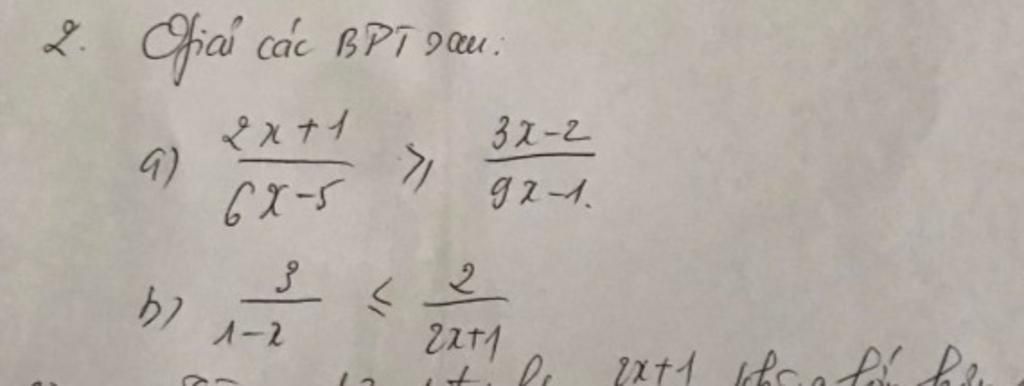 2. Giải các BPT sau:
a) \frac{2x+1}{6x-5} ≥ \frac{3x-2}{9x-1}.
b) \frac{3}{1-x} ≤ \frac{2}{2x+1}
2x+1